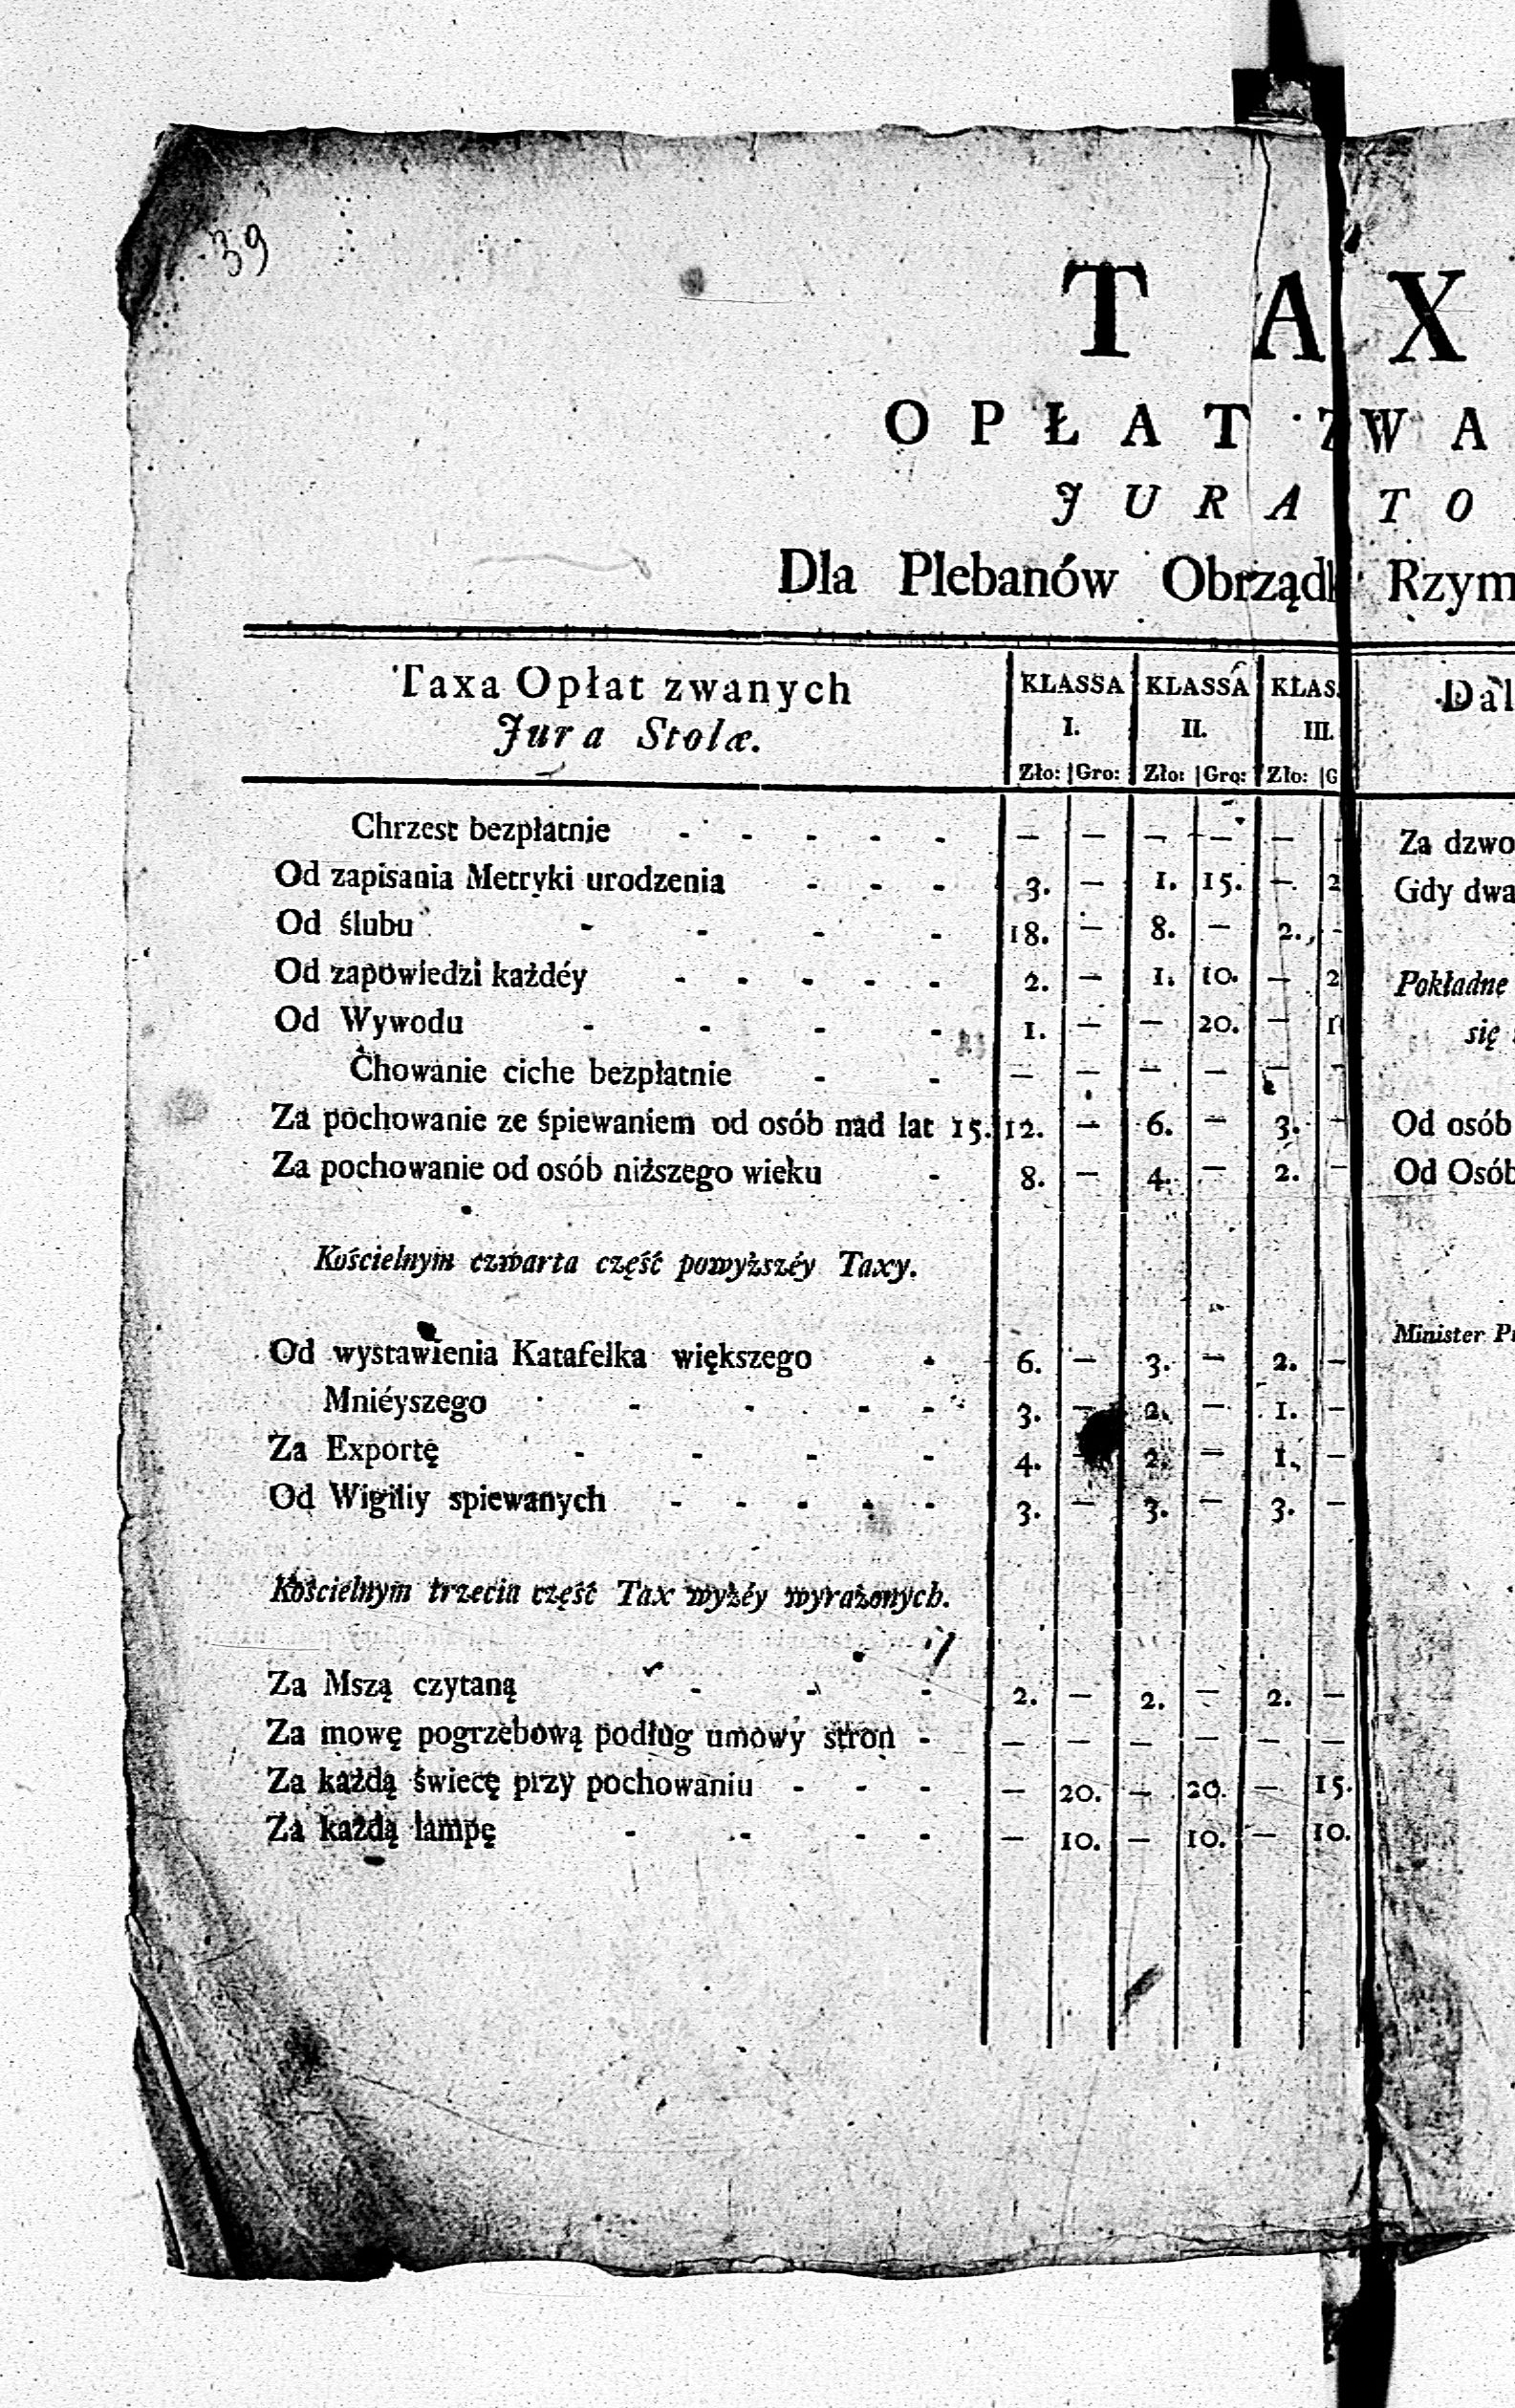 39
T A X
O P Ł A T Z W A
J U R A T O
Dla Plebanów Obrządk Rzym
Taxa Opłat zwanych KLASSA KLASSA KLAS. Dal
Jura Stolæ. I. II. III.
Zło: Gro: Zło: Gro: Zło: G
Chrzest bezpłatnie - - - - - — — — — — Za dzwo
Od zapisania Metryki urodzenia - - - 3. — 1. 15. — 2 Gdy dwa
Od ślubu - - - - 18. — 8. — 2. -
Od zapowiedzi każdéy - - - - - 2. — 1. 10. — 2 Pokładne
Od Wywodu - - - - 1. — — 20. — 1 się
Chowanie ciche bezpłatnie - - — — — — — -
Za pochowanie ze śpiewaniem od osób nad lat 15. 12. — 6. — 3. — Od osób
Za pochowanie od osób niższego wieku - 8. — 4. — 2. — Od Osób
Kościelnym czwarta część powyższéy Taxy.
Minister
Od wystawienia Katafelka większego - 6. — 3. — 2. —
Mniéyszego - - - - 3. — 2. — 1. —
Za Exportę - - - - 4. 2. — 1. —
Od Wigiliy spiewanych - - - - - 3. — 3. — 3. —
Kościelnym trzecia część Tax wyżéy wyrażonych.
Za Mszą czytaną - - - 2. — 2. — 2. —
Za mowę pogrzebową podług umowy stron - — — — — — —
Za każdą świecę przy pochowaniu - - - — 20. — 20. — 15.
Za każdą lampę - - - - — 10. — 10. — 10.